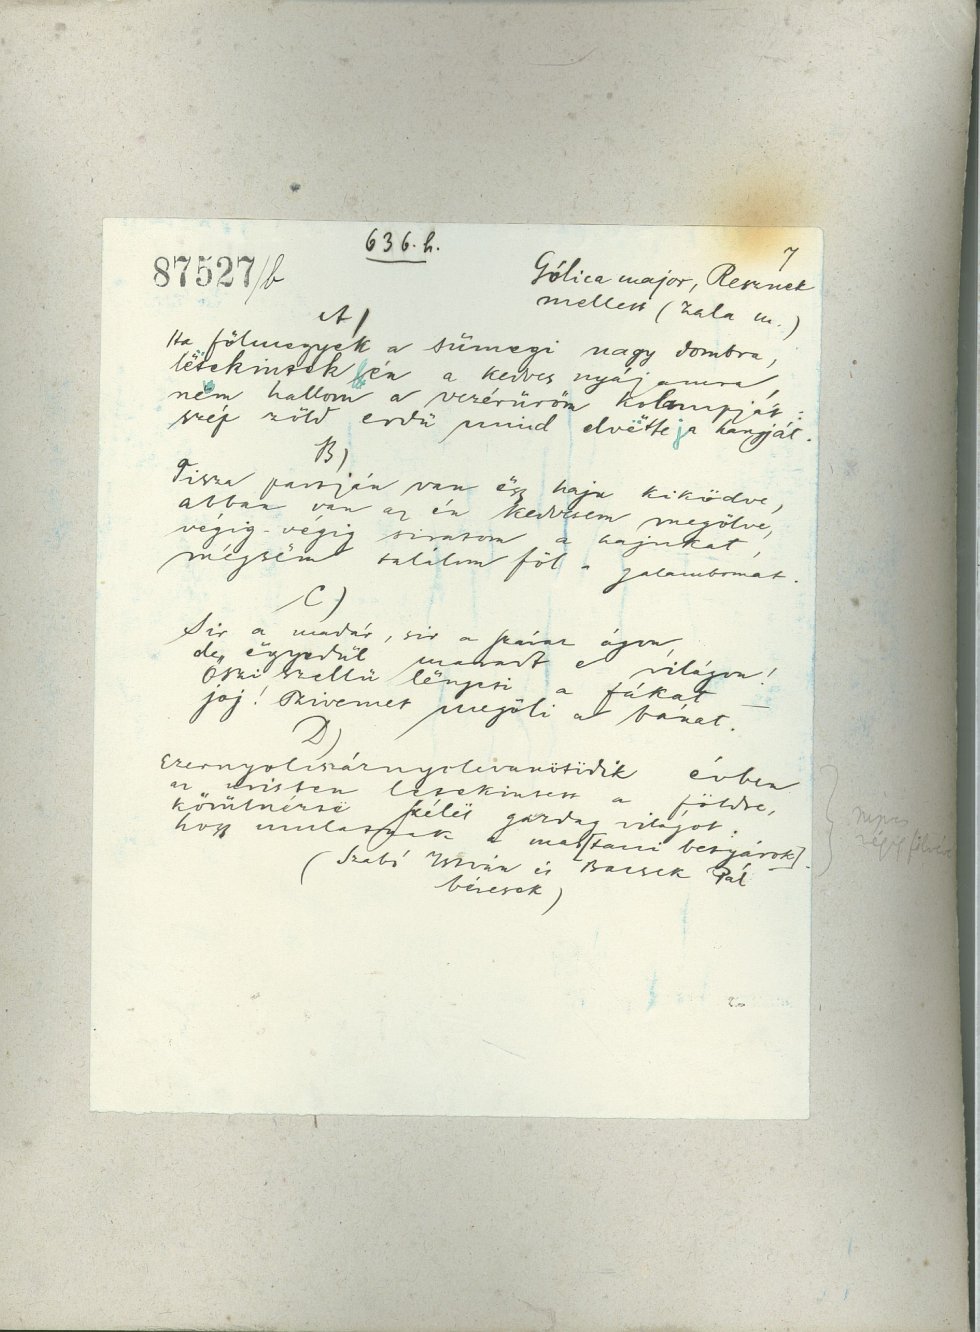 636. h.
87527/b
7
Gólica major, Resznek
mellett (Zala m.)
A)
Ha fölmegyek a sümegi nagy dombra,
létekintek én a kedves nyájamra,
nem hallom a vezérüröm kolompját:
szép zöld erdü mind elvëtte ja hangját.
B)
Tisza partján van ëgy haju kiködve,
abban van az én kedvesem megölve,
végig-végig siratom a hajukat,
mégsëm találom föl a galambomat.
C)
Sir a madár, sir a száraz ágon,
de, ëgyedül maradt e világon!
Őszi szellü lëngeti a fákat —
jaj! szivemet megöli a bánat.
D)
Ezernyolcszáznyolcvanötödik évben
az uristen letekintett a földre,
körülnézte széles gazdag világot:
hogy mulatnak a mos[tani betyárok].
(Szabó István és Bacsek Pál
béresek)
népies